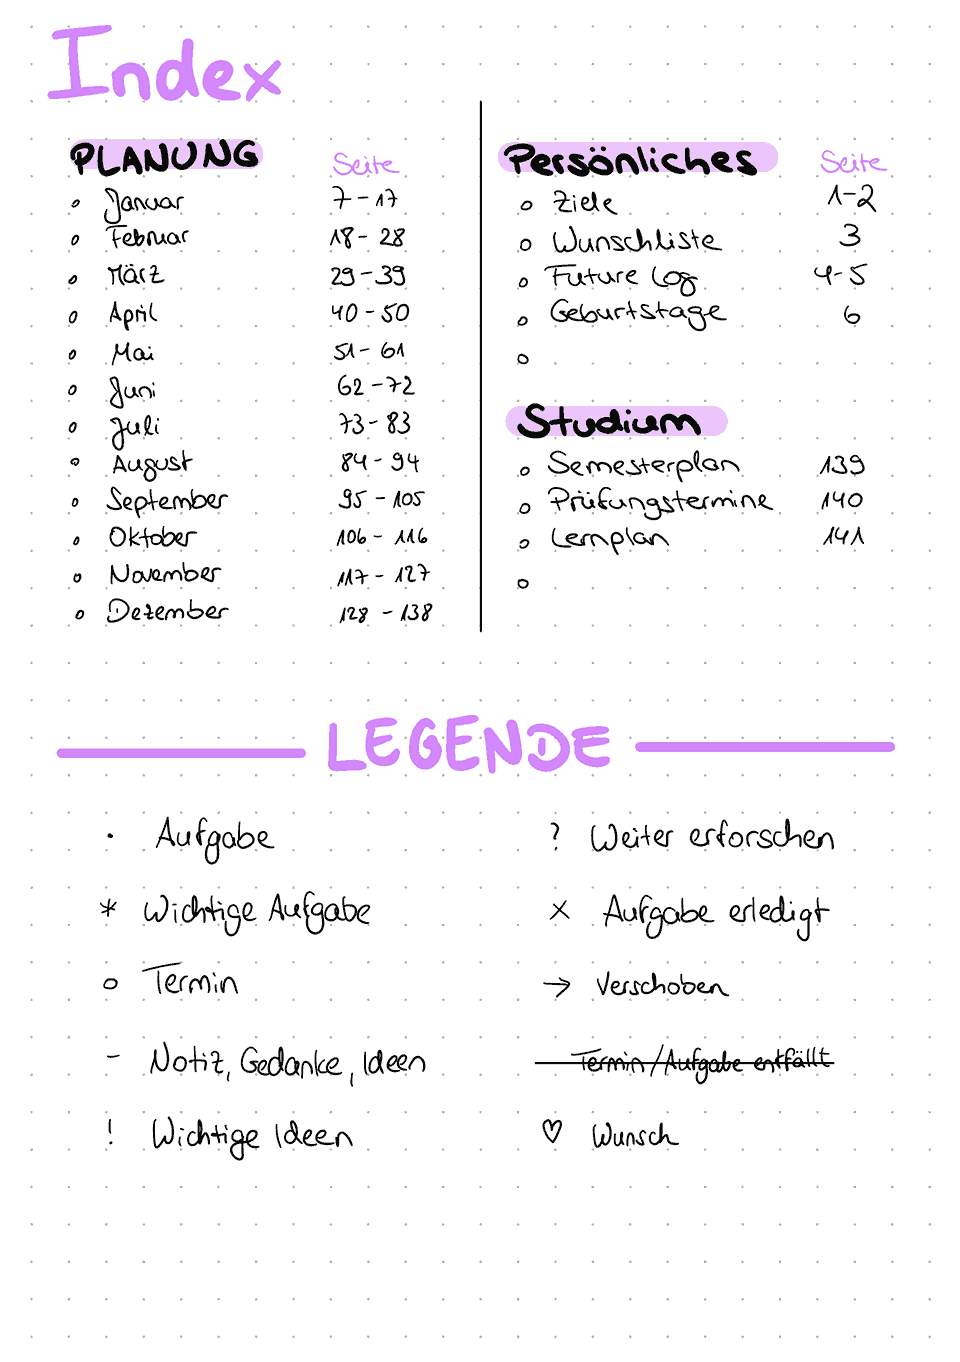 Index
PLANUNG Seite
o Januar 7-17
o Februar 18-28
o März 29-39
o April 40-50
o Mai 51-61
o Juni 62-72
o Juli 73-83
o August 84-94
o September 95-105
o Oktober 106-116
o November 117-127
o Dezember 128-138
Persönliches Seite
o Ziele 1-2
o Wunschliste 3
o Future Log 4-5
o Geburtstage 6
o
Studium
o Semesterplan 139
o Prüfungstermine 140
o Lernplan 141
o
LEGENDE
· Aufgabe
* Wichtige Aufgabe
o Termin
- Notiz, Gedanke, Ideen
! Wichtige Ideen
? Weiter erforschen
x Aufgabe erledigt
→ Verschoben
Termin/Aufgabe entfällt
♡ Wunsch